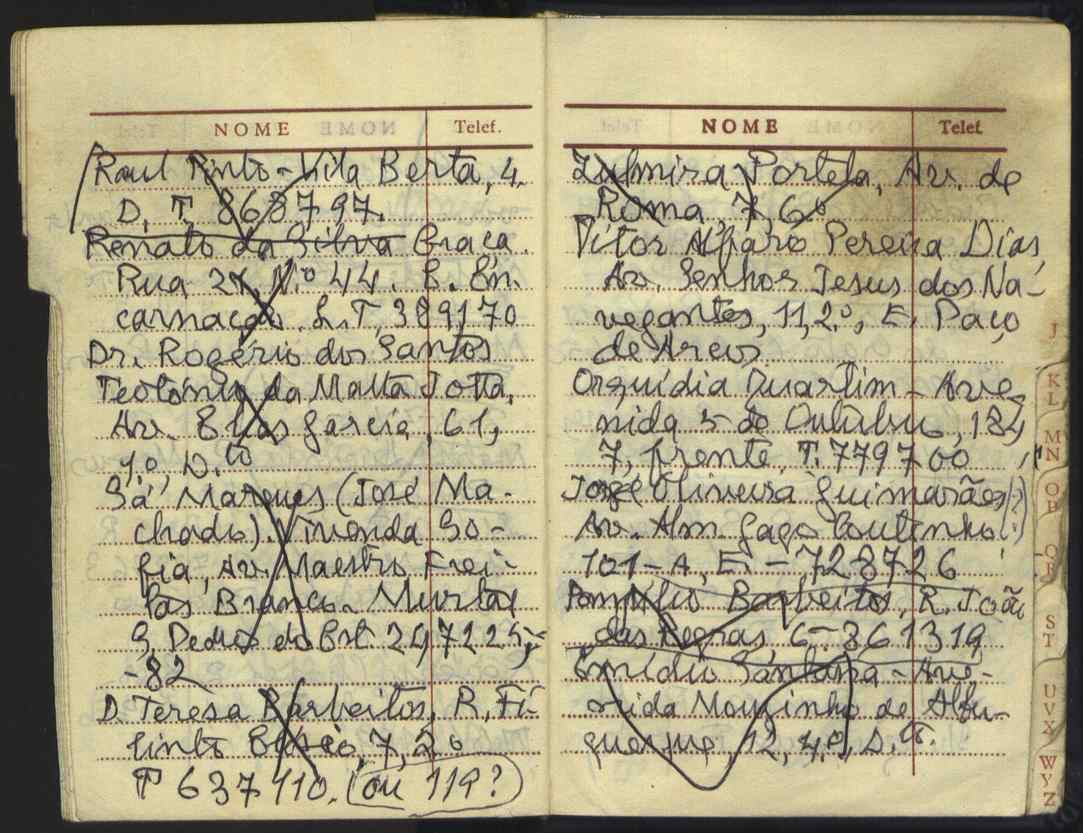 NOME Telef.
Raul Pinto - Vila Berta, 4.
D. T. 868797.
Renato da Silva Graça.
Rua 2, N.º 44. B. En.
carnação. L. T. 389170
Dr. Rogério dos Santos
Teotónio da Matta Jotta,
Av. Elias Garcia, 61,
D.to
Sá Marques (José Ma-
chado). Vivenda So-
fia, Av. Maestro Frei-
tas Branco. Murtal
S. Pedro do Est. 247225
-82
D. Teresa Barbeitos, R. Fi-
linto Elísio, 7, 2º
T 637110. (ou 119?)
NOME Telef.
Zulmira Portela, Av. de
Roma, 7, 6º
Vítor Alfaro Pereira Dias,
Av. Senhor Jesus dos Na-
vegantes, 11, 2.º, E. Paço
de Arcos
Orquídia Quartim - Ave
nida 5 de Outubro, 184,
7, frente, T. 779700
José Oliveira Guimarães (?)
Av. Alm. Gago Coutinho (?)
101-A, E. - 728726
Pompílio Barbeitos, R. João
das Regras, 6 - 361319
Emídio Santana - Ave-
nida Mouzinho de Albu-
querque, 12, 4.º, D.
J
KL
MN
OP
QR
ST
UVX
WYZ